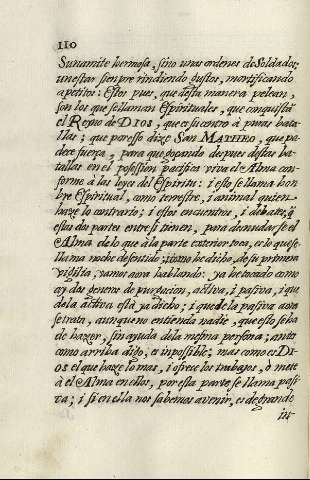 110
Sunamite hermosa, sino unas ordenes de Soldados,
un estar sienpre rindiendo gustos, mortificando
apetitos: Estos pues, que desta manera pelean,
son los que se llaman Espirituales, que conquistã
el Reyno de DIOS, que es in contrò à puras bata
llas; que por esso dixe SAN MATHEO, que pa
dece fuerza, para que gozando despues destas ba
tallas en el possesion pacifica viva el Alma con
forme à las leyes del Espiritu: i esto se llama hon
bre Espiritual, como terrestre, i animal quien
haze lo contrario; i estos encuentros, i debates, q̃
estas dos partes entre si tienen, para desnudarse el
Alma de lo que à la parte exterior toca, es lo que se
llama noche de sentido; i como he dicho, de su primera
vigilia, vamos aora hablando: ya he tocado como
ay dos generos de purgacion, activa, i pasiva, i que
de la activa està ya dicho; i que de la pasiva aora
se trata, aunque no entienda nadie, que esto se ha
de hazer, sin ayuda de la mesma persona; antes
como arriba digo, es inpossible; mas como es DI-
OS el que haze lo mas, i ofrece los trabajos, ò mete
à el Alma en ellos, por esta parte se llama pasi
va; i si en ella nos sabemos avenir, es de grande